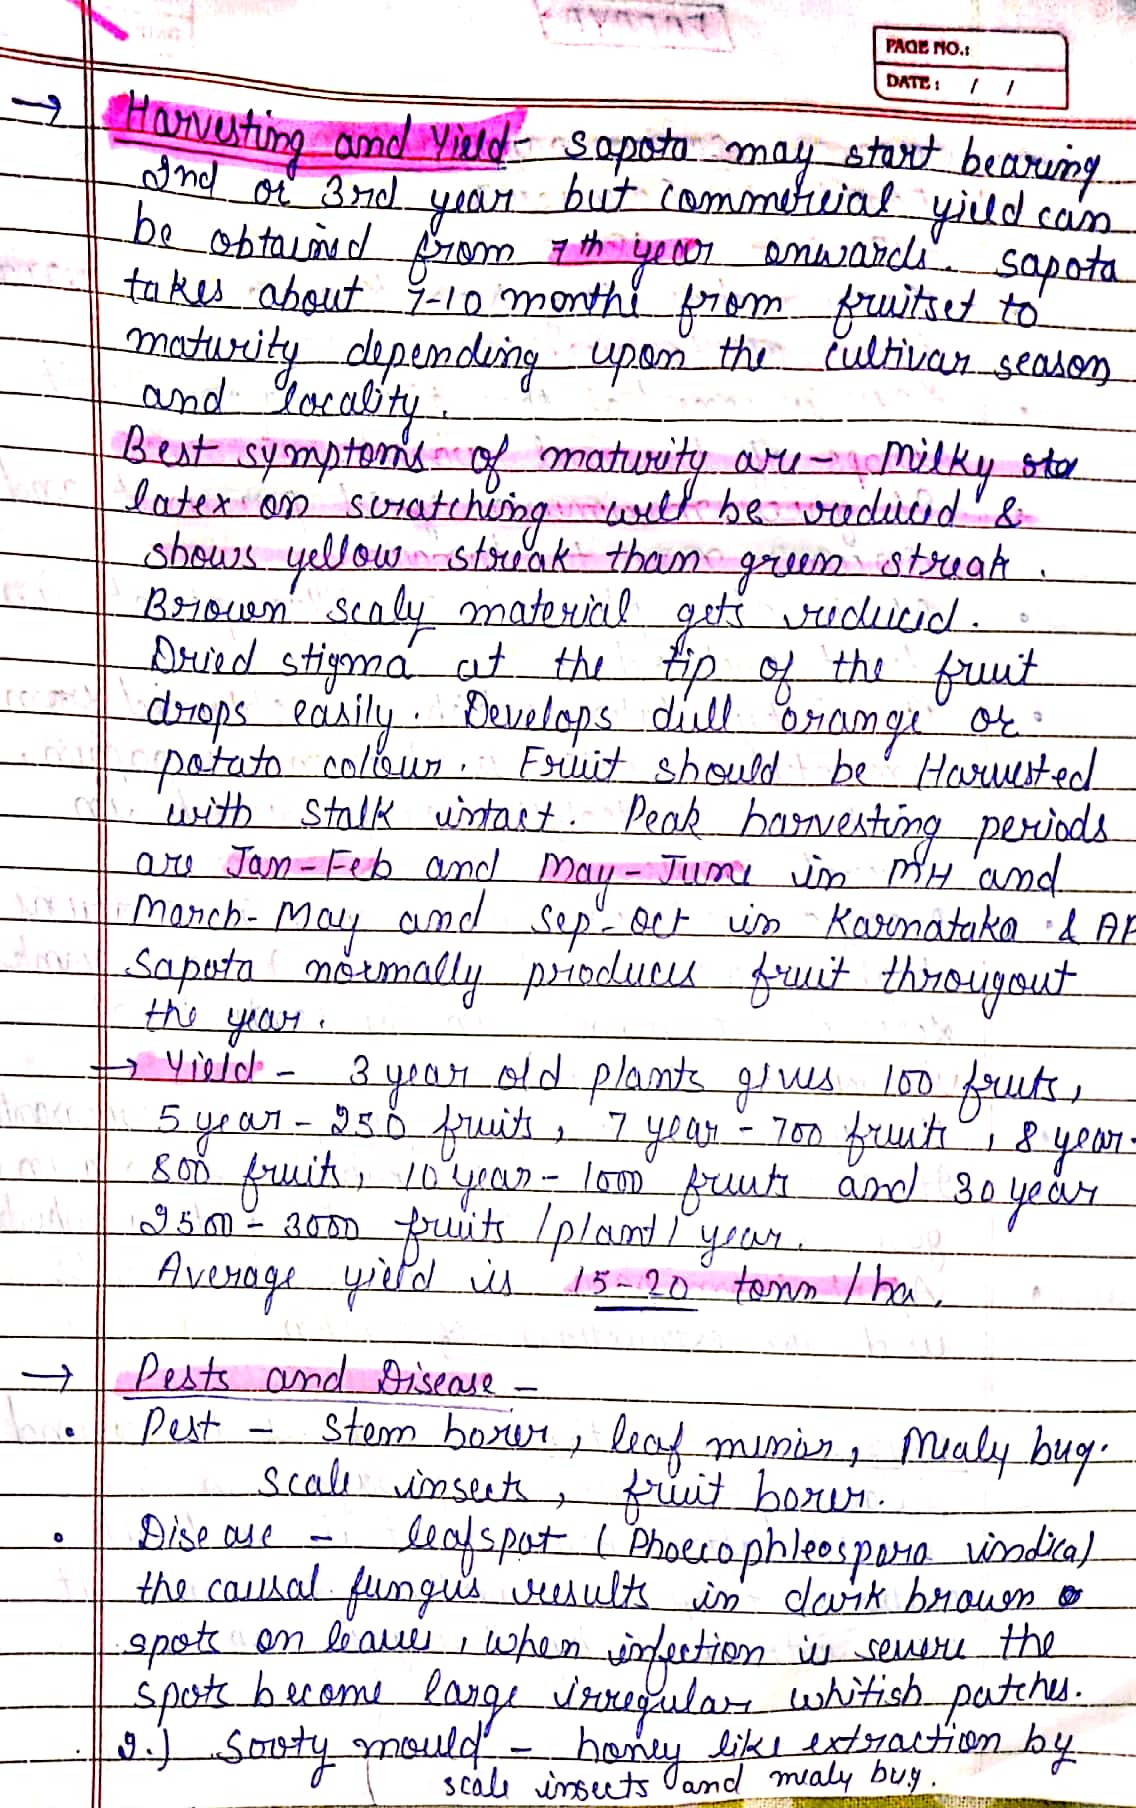 PAGE NO.:
DATE: / /
→ Harvesting and Yield - Sapota may start bearing
2nd or 3rd year but commercial yield can
be obtained from 7th year onwards. Sapota
takes about 7-10 months from fruitset to
maturity depending upon the cultivar season
and locality.
Best symptoms of maturity are - Milky
latex on scratching will be reduced &
shows yellow streak than green streak.
Brown scaly material gets reduced.
Dried stigma at the tip of the fruit
drops easily. Develops dull orange or
potato colour. Fruit should be Harvested
with stalk intact. Peak harvesting periods
are Jan-Feb and May-June in MH and
March-May and Sep-Oct in Karnataka & AP
Sapota normally produces fruit througout
the year.
→ Yield - 3 year old plants gives 100 fruits,
5 year - 250 fruits, 7 year - 700 fruits, 8 year-
800 fruits, 10 year - 1000 fruits and 30 year
2500 - 3000 fruits /plant/ year.
Average yield is 15-20 tonn /ha.
→ Pests and Disease -
• Pest - Stem borer, leaf minor, Mealy bug.
scale insects, fruit borer.
• Disease - leafspot (Phoeophleospora indica)
the causal fungus results in dark brown
spots on leaves, when infection is severe the
spots become large irregular whitish patches.
2.) Sooty mould - honey like extraction by
scale insects and mealy bug.